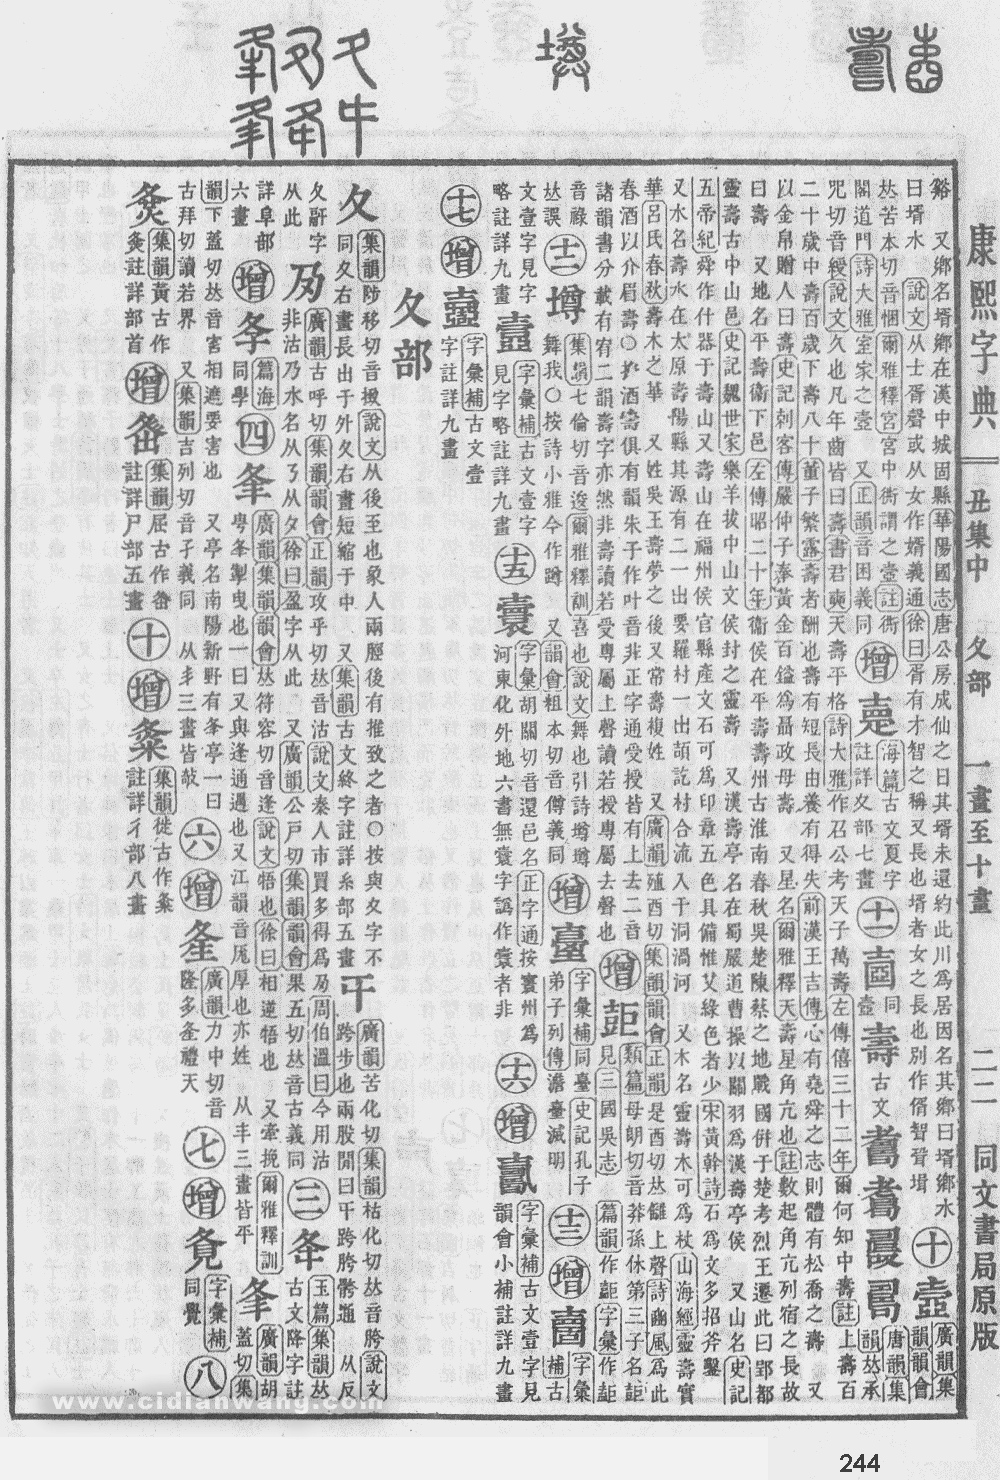 康熙字典 丑集中 夂部 一畫至十畫 二二 同文書局原版
谿 又鄉名壻鄉在漢中城固縣華陽國志唐公房成仙之日其壻未還約此川爲居因名其鄉曰壻鄉水
曰壻水 說文从士胥聲或从女作婿義通徐曰胥有才智之稱又長也壻者女之長也別作偦智聟壻
十 壼 廣韻集韻韻會
𠀤苦本切音悃爾雅釋宮宮中衖謂之壼註衖
閣道門詩大雅室家之壼 又正韻音困義同
增 註詳夊部七畫
海篇古文夏字
十一 同壼
壽 古文 唐韻集韻𠀤承
咒切音綬說文久也凡年齒皆曰壽書君奭天壽平格詩大雅作召公考天子萬壽左傳僖三十二年爾何知中壽註上壽百
二十歲中壽百歲下壽八十董子繁露壽者酬也壽有短長由養有得失前漢王吉傳心有堯舜之志則體有松喬之壽 又
以金帛贈人曰壽史記刺客傳嚴仲子奉黃金百鎰爲聶政母壽 又星名爾雅釋天壽星角亢也註數起角亢列宿之長故
曰壽 又地名平壽衞下邑左傳昭二十年衞侯在平壽壽州古淮南春秋吳楚陳蔡之地戰國倂于楚考烈王遷此曰郢都
靈壽古中山邑史記魏世家樂羊拔中山文侯封之靈壽 又漢壽亭名在蜀嚴道曹操以關羽爲漢壽亭侯 又山名史記
五帝紀舜作什器于壽山又壽山在福州侯官縣產文石可爲印章五色具備惟艾綠色者少宋黃幹詩石爲文多招斧鑿
又水名壽水在太原壽陽縣其源有二一出要羅村一出頡訖村合流入于洞渦河 又木名靈壽木可爲杖山海經靈壽實
華呂氏春秋壽木之華 又姓吳王壽夢之後又常壽複姓 又廣韻殖酉切集韻韻會正韻是酉切𠀤讎上聲詩豳風爲此
春酒以介眉壽○按酒壽俱有韻朱子作叶音非正字通受授皆有上去二音
諸韻書分載有宥二韻壽字亦然非壽讀若受專屬上聲讀若授專屬去聲也
增 類篇母朗切音莽孫休第三子名
見三國吳志篇韻作 字彙作
音祿
𠀤誤
十二 壿 集韻七倫切音逡爾雅釋訓喜也說文舞也引詩壿壿
舞我○按詩小雅今作蹲 又韻會粗本切音僔義同
增 臺 字彙補同臺史記孔子
弟子列傳澹臺滅明
十三 增 字彙補古
文壼字見字
略註詳九畫
壹 字彙補古文壹字
見字略註詳九畫
十五 字彙胡關切音還邑名正字通按寰州爲
河東化外地六書無 字譌作寰者非
十六 增 字彙補古文壹字見
韻會小補註詳九畫
十七 增 字彙補古文壹
字註詳九畫
夂部
夂 集韻陟移切音㨖說文从後至也象人兩脛後有推致之者○按與夊字不
同夂右畫長出于外夊右畫短縮于中 又集韻古文終字註詳糸部五畫
㐄 廣韻苦化切集韻枯化切𠀤音胯說文
跨步也兩股閒曰㐄跨胯骻通 从反
夂辭字
从此
夃 廣韻古呼切集韻韻會正韻攻乎切𠀤音沽說文秦人市買多得爲夃周伯溫曰今用沽
非沽乃水名从𠄎从夂徐曰盈字从此 又廣韻公戸切集韻韻會果五切𠀤音古義同
三 夅 玉篇集韻𠀤
古文降字註
詳阜部
六畫
增 夆 篇海
同學
四 夆 廣韻集韻韻會𠀤符容切音逢說文悟也徐曰相逆悟也 又牽挽爾雅釋訓
甹夆掣曳也一曰又與逢通遇也又江韻音厖厚也亦姓 从丰三畫皆平
夆 廣韻胡
蓋切集
韻下蓋切𠀤音害相遮要害也 又亭名南陽新軒有夆亭一曰
古拜切讀若界 又集韻吉列切音孑義同 从丯三畫皆欹
六 增 廣韻力中切音
隆多夆禮天
七 增 字彙補
同覺
八
集韻黃古作
註詳部首
增 集韻屈古作
註詳尸部五畫
十 增 集韻徙古作
註詳彳部八畫
www.cidianwang.com
244